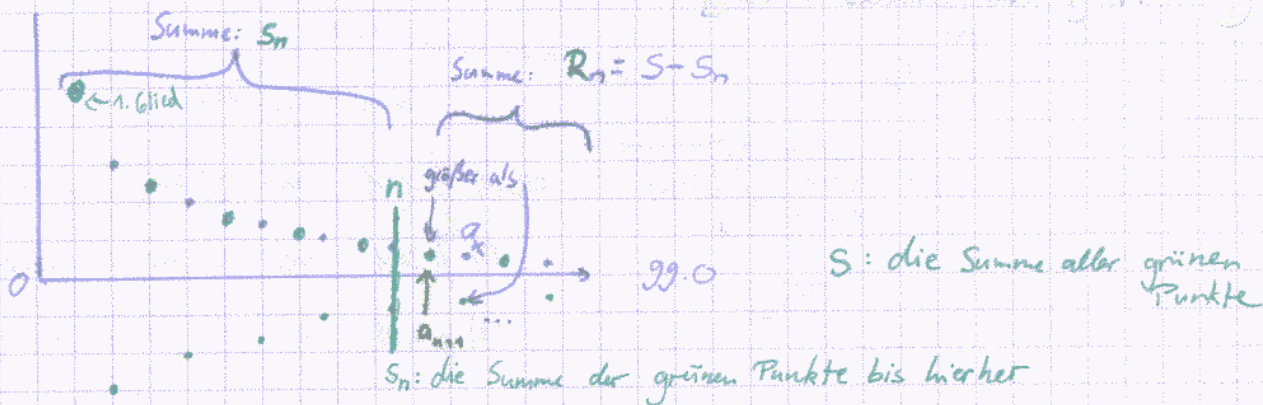 Summe: Sₙ
Summe: Rₙ = S - Sₙ
← 1. Glied
größer als
n
aₓ
0
gg. 0
S: die Summe aller grünen
Punkte
aₙ₊₁
...
Sₙ: die Summe der grünen Punkte bis hierher